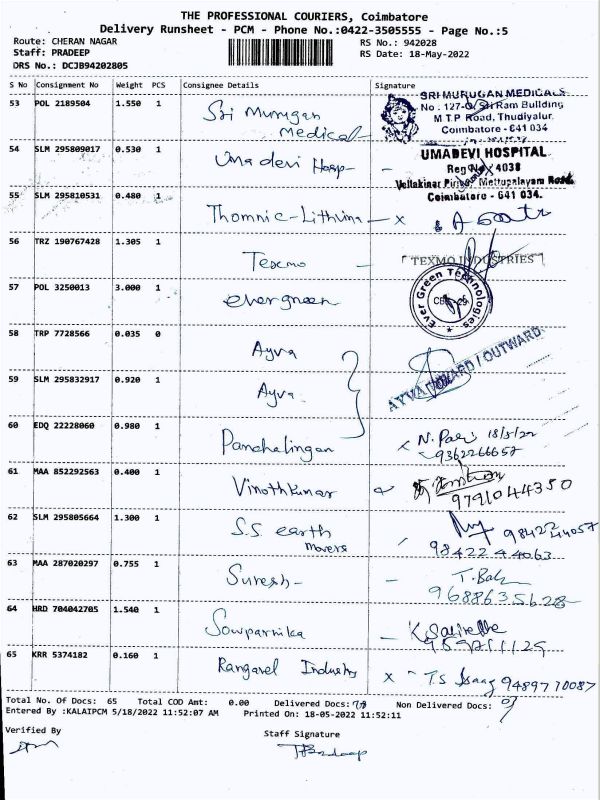 THE PROFESSIONAL COURIERS, Coimbatore
Delivery Runsheet - PCM - Phone No.:0422-3505555 - Page No.:5
Route: CHERAN NAGAR RS No.: 942028
Staff: PRADEEP RS Date: 18-May-2022
DRS No.: DCJB94202805
S No Consignment No Weight PCS Consignee Details Signature
53 POL 2189504 1.550 1 Sri Murugan
Medical
SRI MURUGAN MEDICALS
No : 127- Sri Ram Building
M.T.P Road, Thudiyalur,
Coimbatore - 641 034
54 SLM 295809017 0.530 1 Uma devi Hosp -
UMADEVI HOSPITAL
Reg No 4038
Vellakinar Mettupalayam Road,
Coimbatore - 641 034.
55 SLM 295810531 0.480 1 x
56 TRZ 190767428 1.305 1 Texmo - TEXMO INDUSTRIES
57 POL 3250013 3.000 1 evergreen
Ever Green Technologies
58 TRP 7728566 0.035 0 Ayva
59 SLM 295832917 0.920 1 Ayva
AYVA INWARD / OUTWARD
60 EDQ 22228060 0.980 1 Panchalingan x N. 18/5/22
9362266657
61 MAA 852292563 0.400 1 Vinothkumar
9791044350
62 SLM 295805664 1.300 1 S.S. earth 98422 44057
movers 98422 44063
63 MAA 287020297 0.755 1 Suresh - - T.
9688635628
64 HRD 704042705 1.540 1 Sowparnika -
65 KRR 5374182 0.160 1 Rangavel Industry x TS 9489710087
Total No. Of Docs: 65 Total COD Amt: 0.00 Delivered Docs: Non Delivered Docs:
Entered By :KALAIPCM 5/18/2022 11:52:07 AM Printed On: 18-05-2022 11:52:11
Verified By Staff Signature